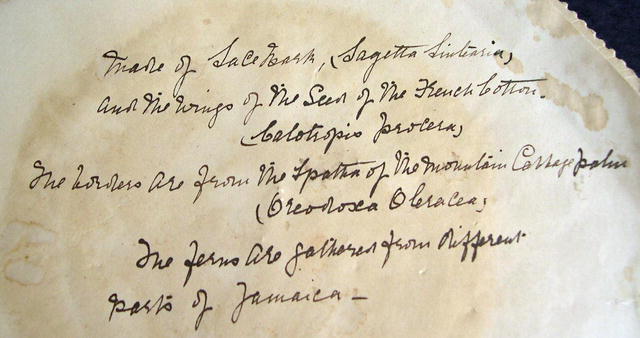 Made of Lace Bark, (Lagetta Lintearia,
and the wings of the Seed of the French Cotton.
(Calotropis Procera,
The borders are from the Spatha of the Mountain Cabbage palm
(Oreodoxa Oleracea,
The ferns are gathered from different
parts of Jamaica —